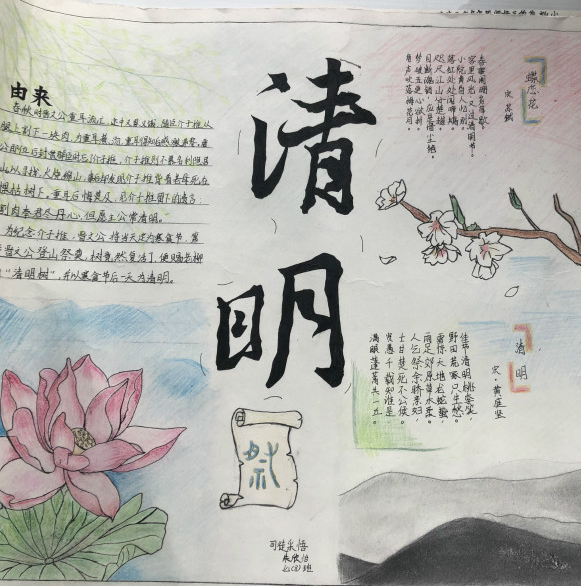 由来
春秋时晋文公重耳流亡,途中又累又饿,随臣介子推从
腿上割下一块肉,为重耳煮汤,重耳得知后感激涕零,重
公即位后封赏群臣时忘了介子推,介子推则不慕名利隐居
以寻找,火烧绵山,最后却发现介子推背着老母死在
棵枯树下,重耳后悔莫及,见介子推留下的遗言:
割肉奉君尽丹心,但愿主公常清明。"
为纪念介子推,晋文公将当天定为寒食节,第
晋文公登山祭奠,树竟然复活了,便赐老柳
"清明树",并以寒食节后一天为清明。
清
明
祭
蝶恋花
宋 苏轼
春事阑珊芳草歇。
客里风光,又过清明节。
小院黄昏人忆别。
落红处处闻啼鴂。
咫尺江山分楚越。
目断魂销,应是音尘绝。
梦破五更心欲折。
角声吹落梅花月。
清明
宋·黄庭坚
佳节清明桃李笑,
野田荒冢只生愁。
雷惊天地龙蛇蛰,
雨足郊原草木柔。
人乞祭余骄妾妇,
士甘焚死不公侯。
贤愚千载知谁是,
满眼蓬蒿共一丘。
司徒采悟
朱欣怡